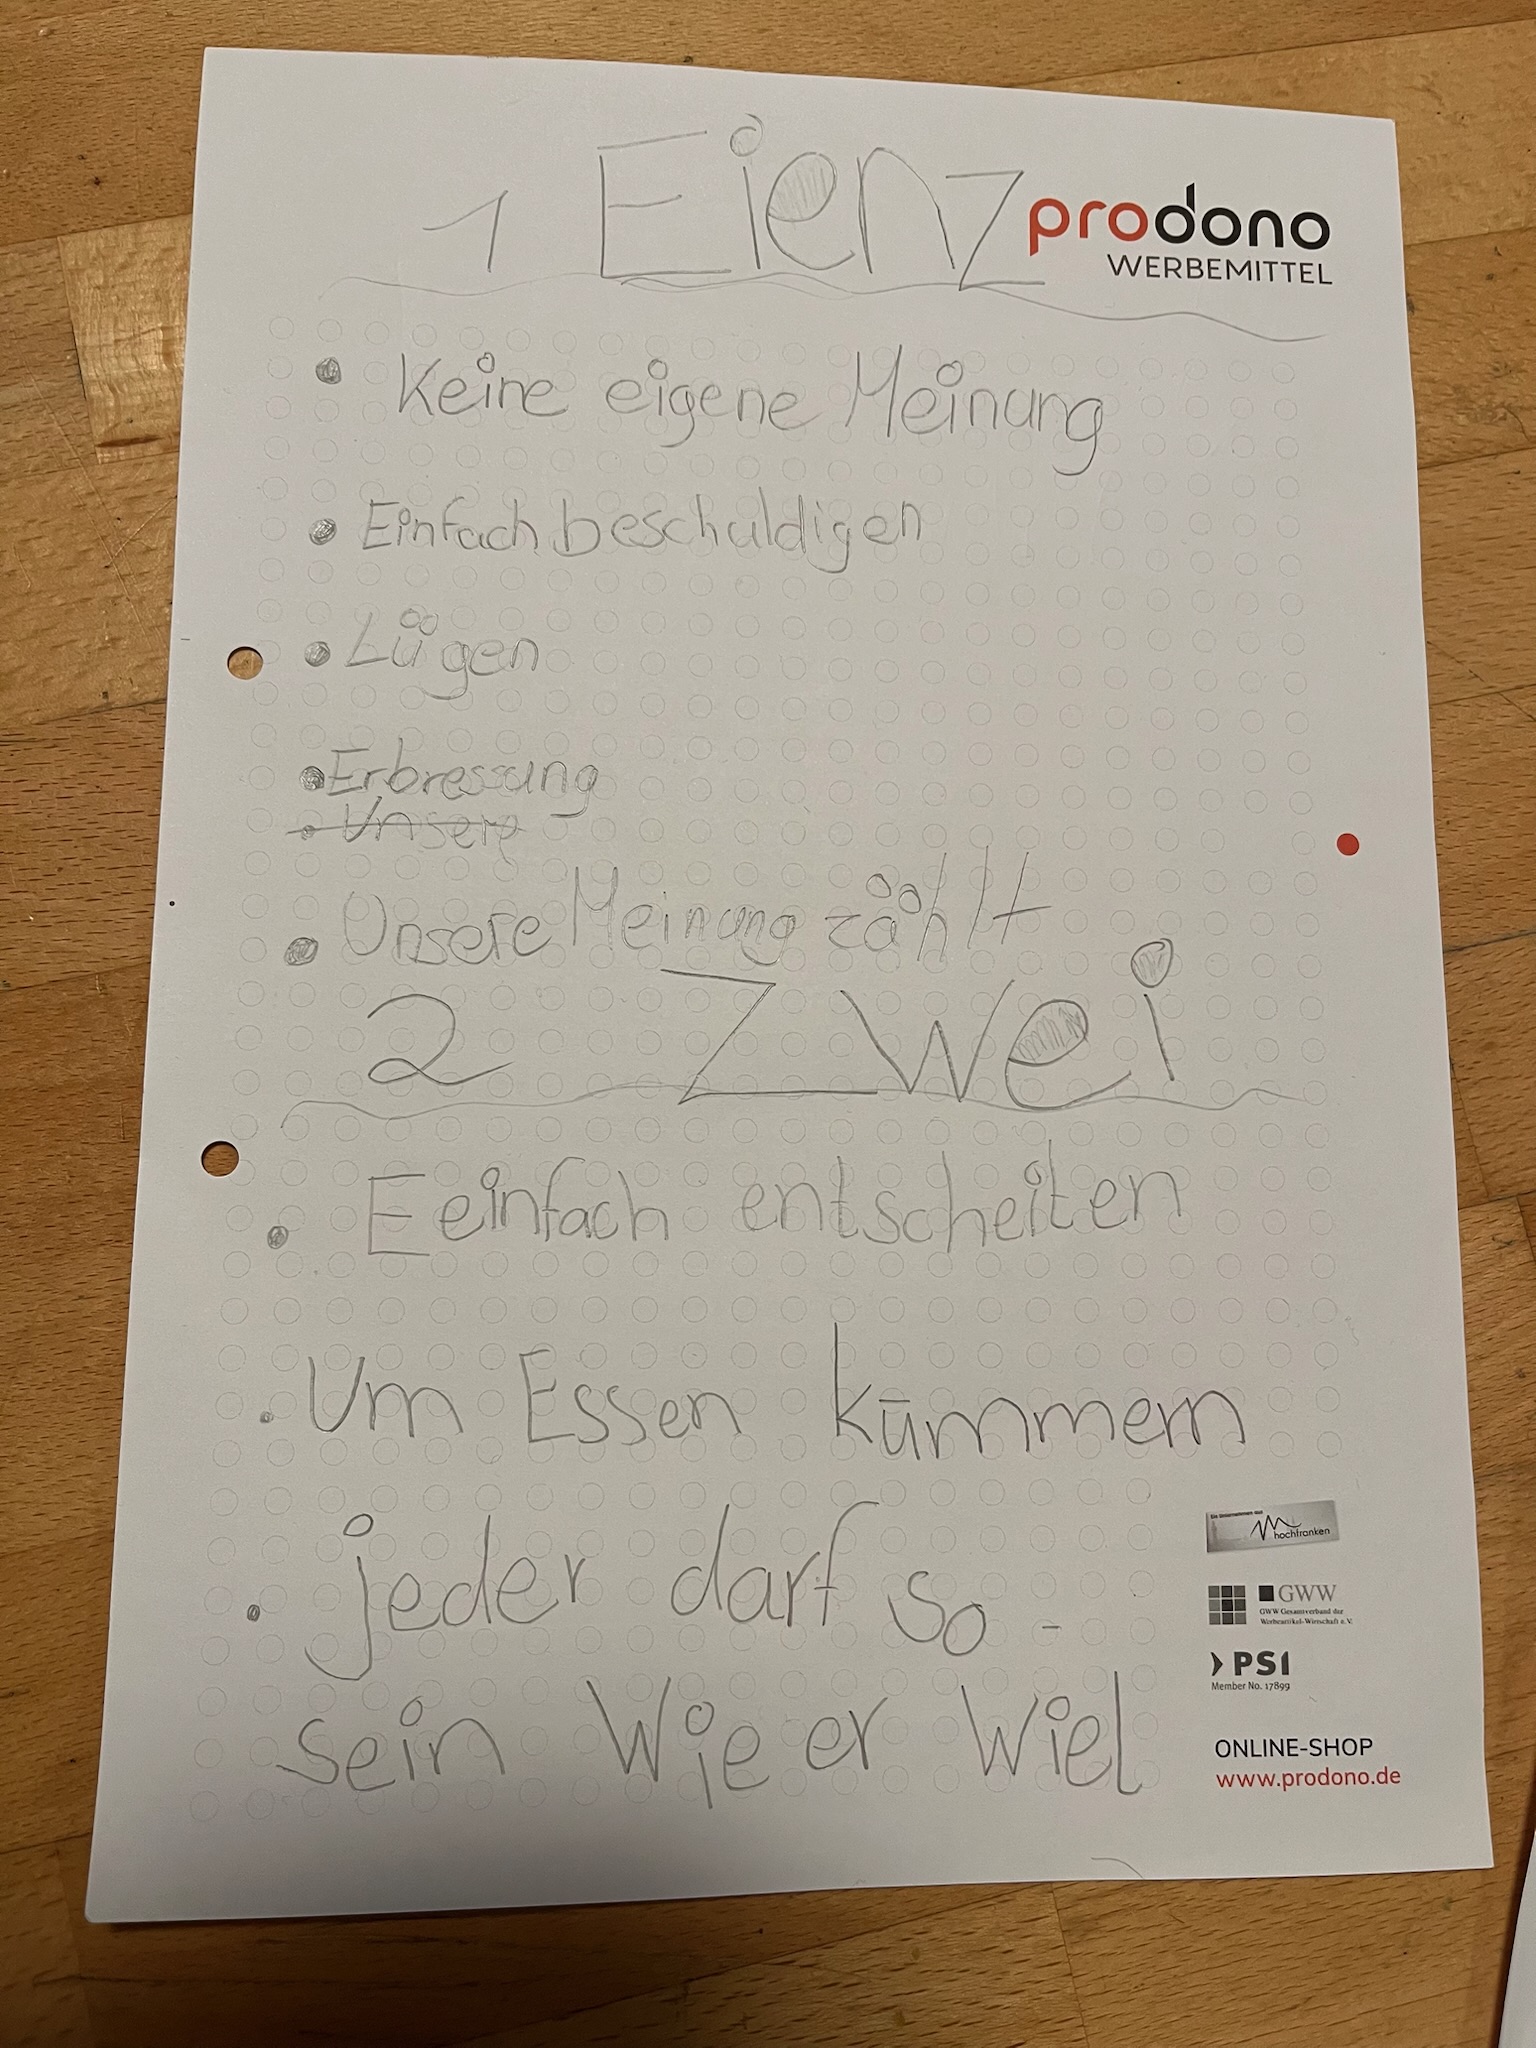 1 Eienz
prodono
WERBEMITTEL
• Keine eigene Meinung
• Einfach beschuldigen
• Lügen
• Erbressung
• Unsere
• Unsere Meinung zählt
2 Zwei
• Eeinfach entscheiten
• Um Essen kümmern
• jeder darf so -
sein Wie er Wiel
hochfranken
GWW
GWW Gesamtverband der
Werbeartikel-Wirtschaft e.V.
PSI
Member No. 17899
ONLINE-SHOP
www.prodono.de